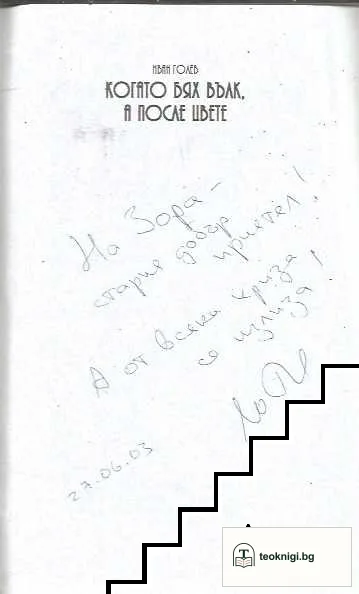 ИВАН ГОЛЕВ
КОГАТО БЯХ ВЪЛК,
А ПОСЛЕ ЦВЕТЕ
На Зора –
стария добър
приятел!
А от всяка криза
се излиза!
27.06.03
teoknigi.bg